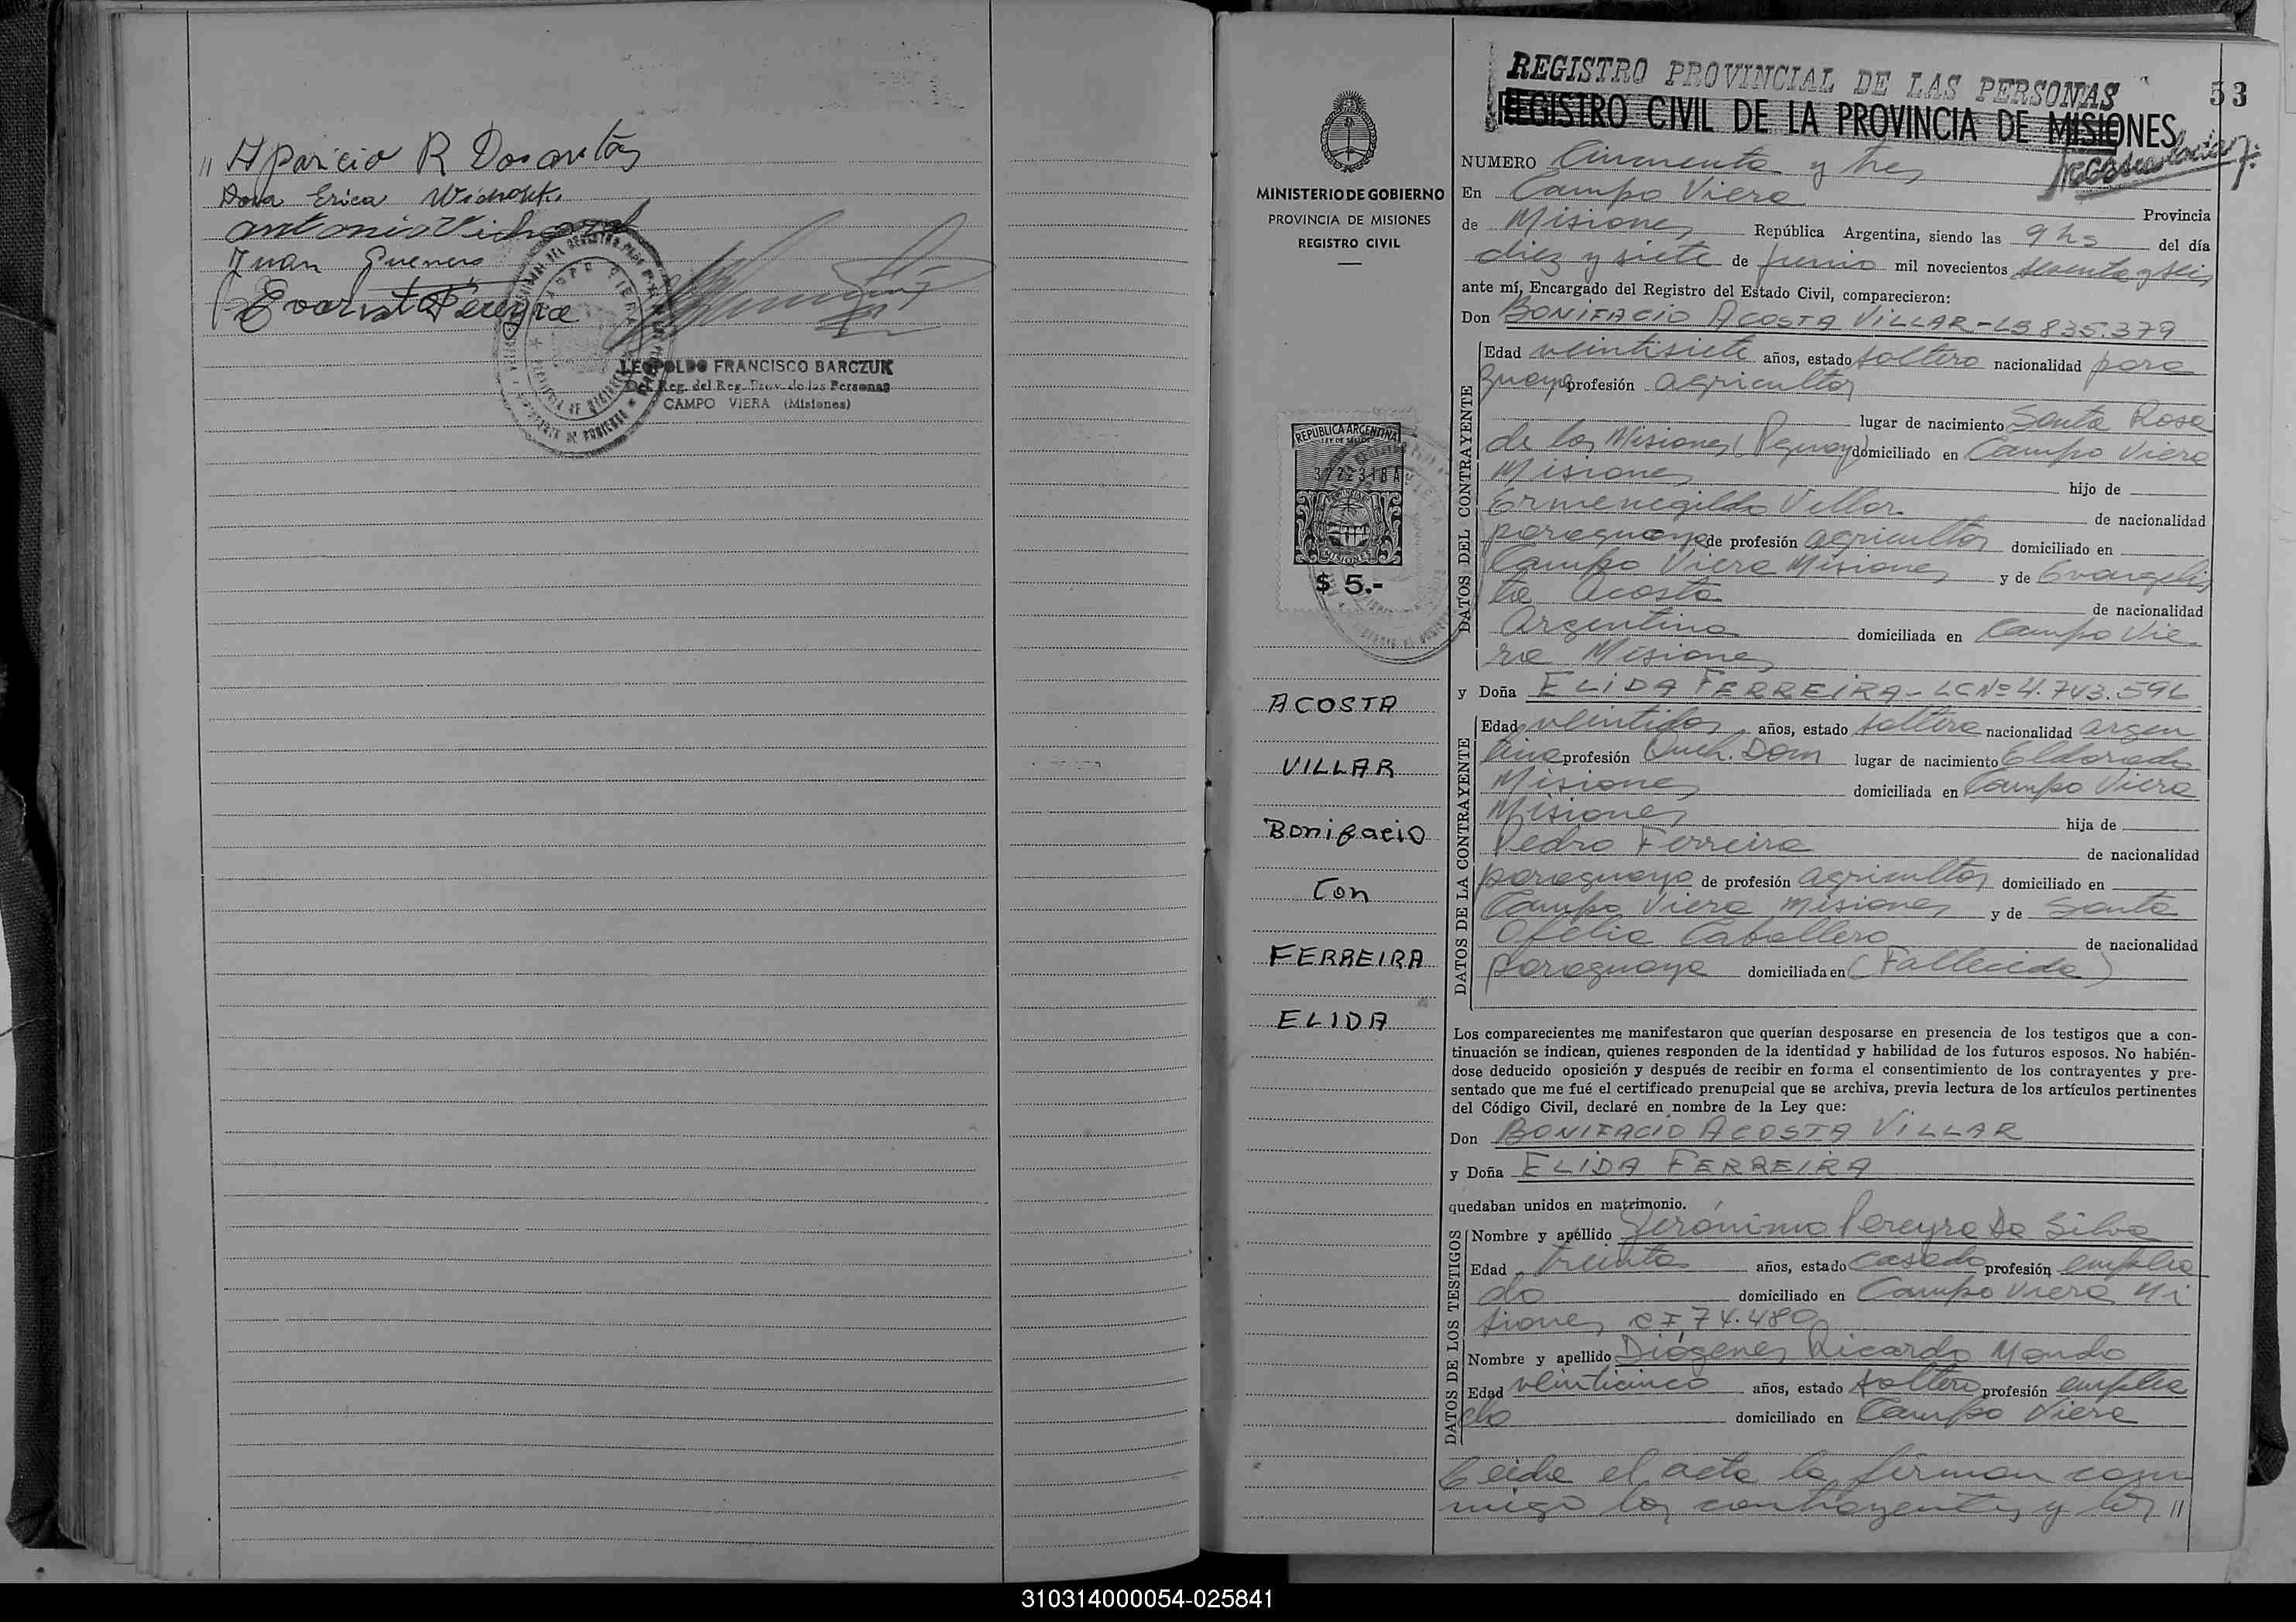 " Aparicio R Dosantos
Dora Erica
Antonio
Juan Guerrero
Evaristo Pereyra
LEOPOLDO FRANCISCO BARCZUK
Reg. del Reg. Prov. de las Personas
CAMPO VIERA (Misiones)
REGISTRO PROVINCIAL DE LAS PERSONAS
53
REGISTRO CIVIL DE LA PROVINCIA DE MISIONES
MINISTERIO DE GOBIERNO
PROVINCIA DE MISIONES
REGISTRO CIVIL
REPUBLICA ARGENTINA
LEY DE SELLOS
322318 A
MISIONES
$ 5.-
ACOSTA
VILLAR
Bonifacio
Con
FERREIRA
ELIDA
NUMERO Cincuenta y tres
En Campo Viera Provincia
de Misiones República Argentina, siendo las 9 hs del día
diez y siete de junio mil novecientos sesenta y seis
ante mí, Encargado del Registro del Estado Civil, comparecieron:
Don BONIFACIO ACOSTA VILLAR-
DATOS DEL CONTRAYENTE
Edad veintisiete años, estado soltero nacionalidad para
guaya profesión agricultor
lugar de nacimiento Santa Rosa
de las Misiones (Pguay) domiciliado en Campo Viera
Misiones hijo de
Ermenegildo Villar de nacionalidad
paraguaya de profesión agricultor domiciliado en
Campo Viera Misiones y de Evangelis
ta Acosta de nacionalidad
Argentina domiciliada en Campo Vie
ra Misiones
y Doña ELIDA FERREIRA- LC Nº 4.743.596
DATOS DE LA CONTRAYENTE
Edad veintidos años, estado soltera nacionalidad argen
tina profesión Queh. Dom lugar de nacimiento Eldorado
Misiones domiciliada en Campo Viera
Misiones hija de
Pedro Ferreira de nacionalidad
paraguaya de profesión agricultor domiciliado en
Campo Viera Misiones y de Santa
Ofelia Caballero de nacionalidad
paraguaya domiciliada en (Fallecida)
Los comparecientes me manifestaron que querían desposarse en presencia de los testigos que a con-
tinuación se indican, quienes responden de la identidad y habilidad de los futuros esposos. No habién-
dose deducido oposición y después de recibir en forma el consentimiento de los contrayentes y pre-
sentado que me fué el certificado prenupcial que se archiva, previa lectura de los artículos pertinentes
del Código Civil, declaré en nombre de la Ley que:
Don BONIFACIO ACOSTA VILLAR
y Doña ELIDA FERREIRA
quedaban unidos en matrimonio.
DATOS DE LOS TESTIGOS
Nombre y apellido Jerónimo Pereyra Da Silva
Edad treinta años, estado casado profesión emplea
do domiciliado en Campo Viera Mi
siones CI 74.480
Nombre y apellido Diógenes Ricardo Mando
Edad veinticinco años, estado soltero profesión emplea
do domiciliado en Campo Viera
Leida el acta la firman con
migo los contrayentes y los "
310314000054-025841